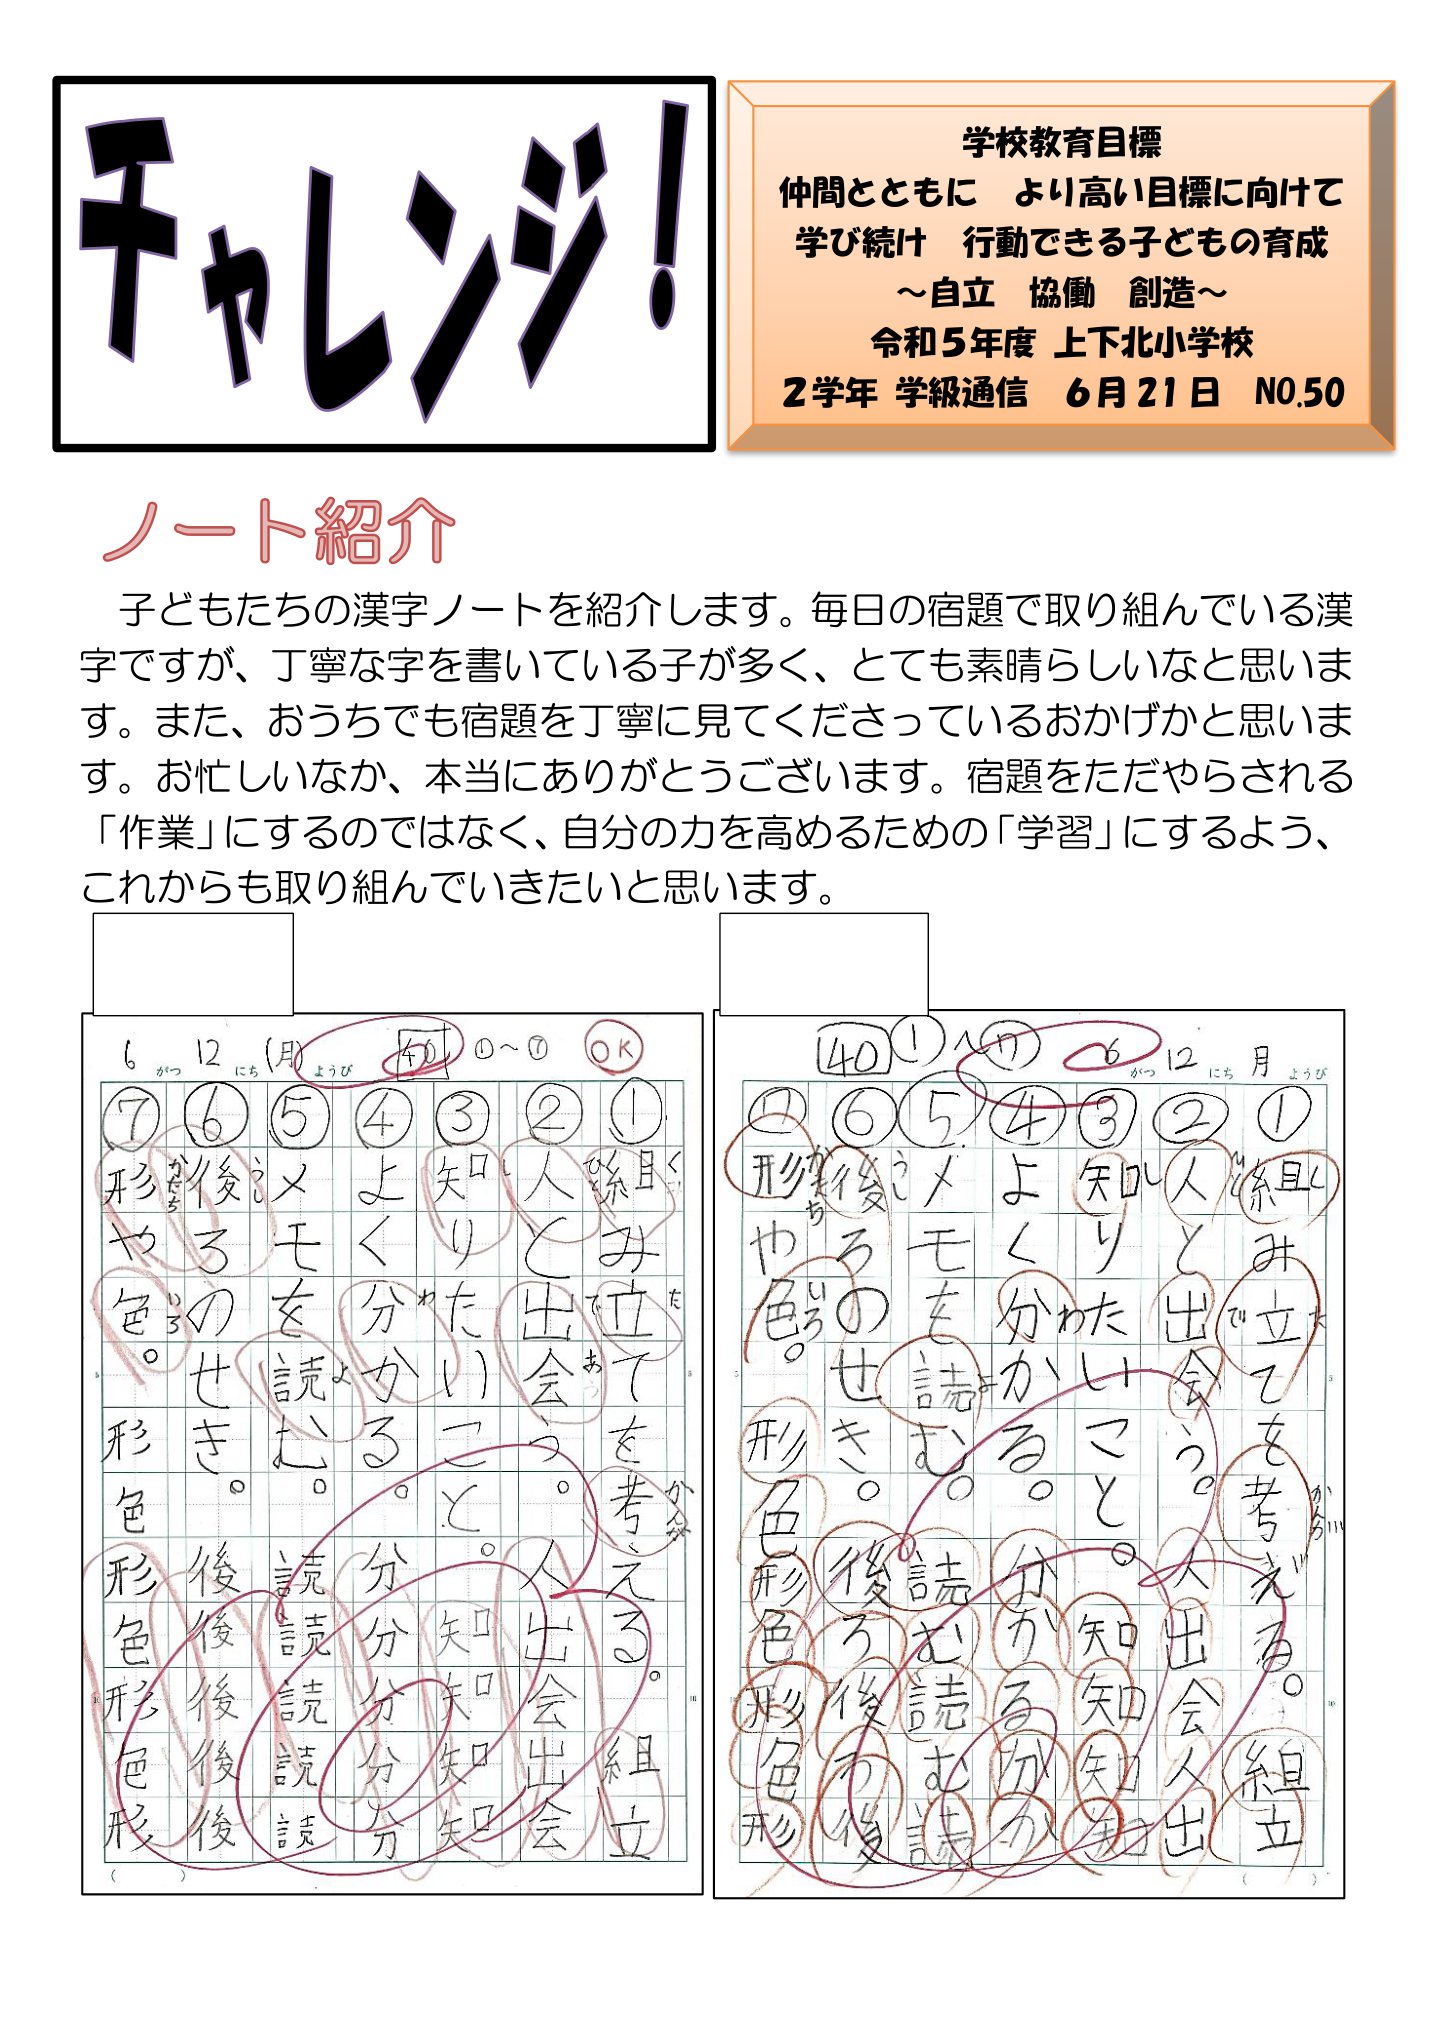 チャレンジ！
学校教育目標
仲間とともに　より高い目標に向けて
学び続け　行動できる子どもの育成
～自立　協働　創造～
令和５年度 上下北小学校
２学年 学級通信　６月２１日　NO.50
ノート紹介
子どもたちの漢字ノートを紹介します。毎日の宿題で取り組んでいる漢
字ですが、丁寧な字を書いている子が多く、とても素晴らしいなと思いま
す。また、おうちでも宿題を丁寧に見てくださっているおかげかと思いま
す。お忙しいなか、本当にありがとうございます。宿題をただやらされる
「作業」にするのではなく、自分の力を高めるための「学習」にするよう、
これからも取り組んでいきたいと思います。
6 がつ 12 にち (月) ようび 40 ①～⑦ OK
① 組み立てを考える。組立
② 人と出会う。人出会出会
③ 知りたいこと。知知知知
④ よく分かる。分分分分分
⑤ メモを読む。読読読読読
⑥ 後ろのせき。後後後後後
⑦ 形や色。形色形色形色形
40 ①～⑦ 6 がつ 12 にち 月 ようび
① 組み立てを考える。組立
② 人と出会う。人出会人出
③ 知りたいこと。知知知知
④ よく分かる。分かる分か
⑤ メモを読む。読む読む読
⑥ 後ろのせき。後ろ後ろ後
⑦ 形や色。形色形色形色形